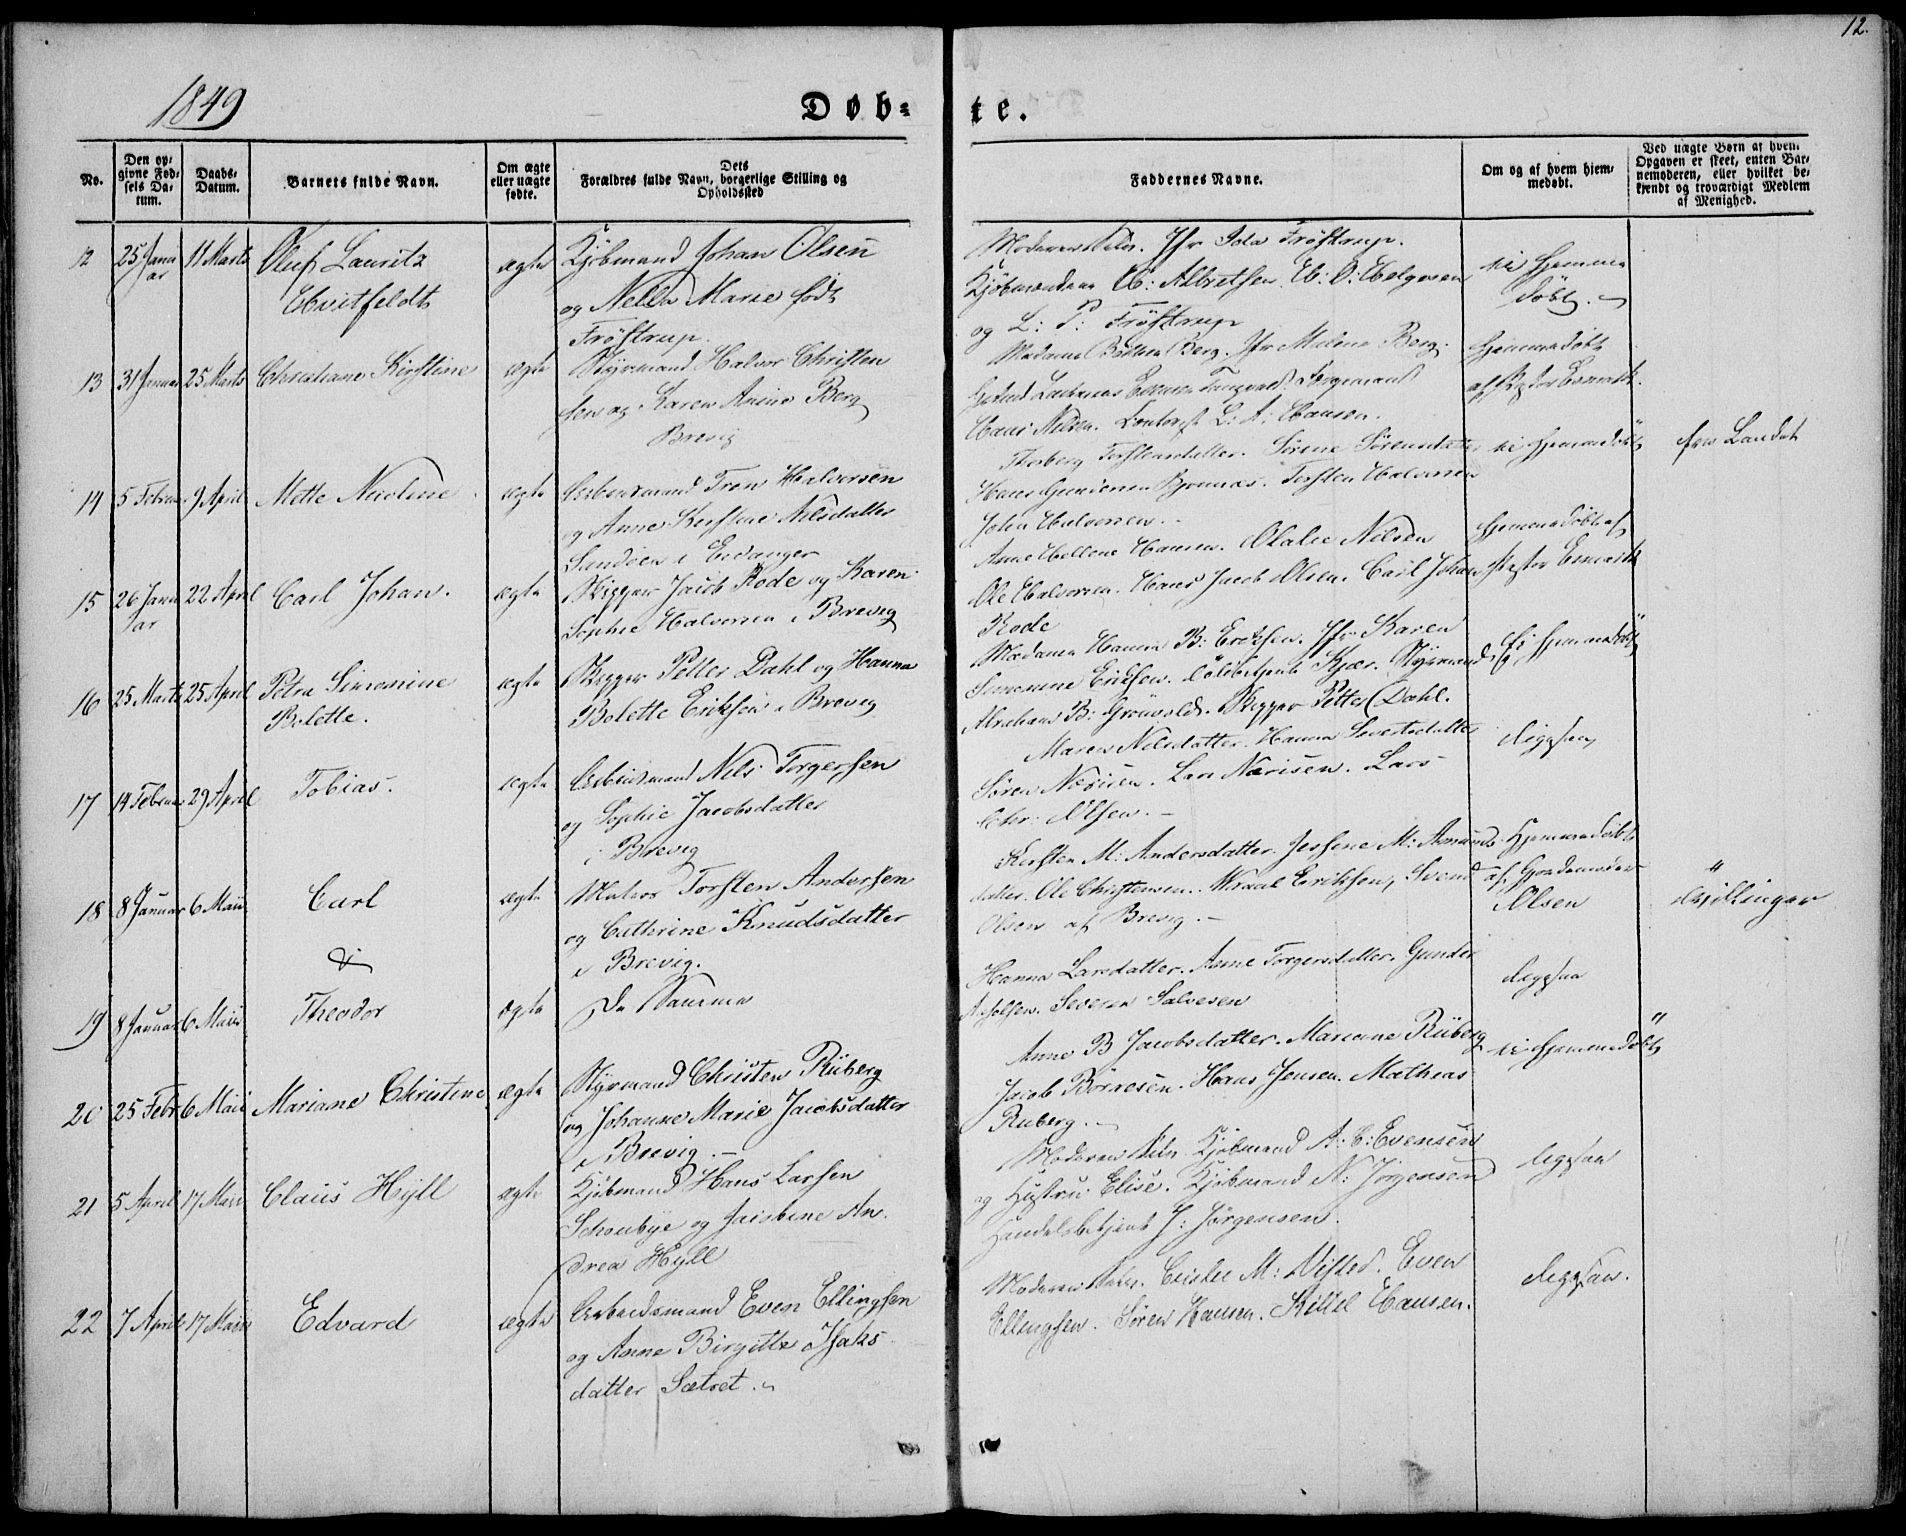 12.
1849
Døb=
te.
No.
Den op-
givne Fød-
sels Da-
tum.
Daabs-
Datum.
Barnets fulde Navn.
Om ægte
eller uægte
fødte.
Dets
Forældres fulde Navn, borgerlige Stilling og
Opholdssted
Faddernes Navne.
Om og af hvem hjem-
medøbt.
Ved uægte Børn af hvem
Opgaven er skeet, enten Bar-
nemoderen, eller hvilket be-
kjendt og troværdigt Medlem
af Menighed.
12 25 Janu
ar 11 Marts Oluf Lauritz
Hvitfeldt ægte Kjøbmand Johan Olsen
og Nella Marie født
Frøstrup.
Moderen selv. Jfr Ida Frøstrup.
Kjøbmændene C: Albretsen. H: O: Helgesen
og L: P: Frøstrup
ei Hjemme
døbt.
13 31 Januar 25 Marts Christiane Kirstine ægte Styrmand Halvor Christen
sen og Karen Anine Berg
Brevig
Madame Berg. Jfr Malene Berg.
Hans Nilsen. Contorist L: A: Hansen.
Hjemmedøbt
af Pastor Esmark.
14 5 Februar 9 April Mette Nicoline ægte Arbeidsmand Tron Halvorsen
og Anne Kirstine Nilsdatter
Sandøen i Eidanger
Thorberg Torstensdatter. Sørene Sørensdatter
Hans Gundersen Bjønnes. Torsten Halvorsen
John Halvorsen.
ei Hjemmedøbt
fra Landet
15 26 Janu
ar 22 April Carl Johan. ægte Skipper Jacob Rode og Karen
Sophie Halvorsen i Brevig
Anne Hellene Hansen. Olalie Nilsen
Ole Halvorsen. Hans Jacob Olsen. Carl Johan
Rode
Hjemmedøbt af
Pastor Esmark
16 25 Marts 25 April Petra Simonine
Bolette. ægte Skipper Petter Dahl og Hanna
Bolette Eriksen i Brevig
Madame Hanna B: Eriksen. Jfr Karen
Simonine Eriksen. Toldbetjent Kjær. Styrmand
Abraham B: Grønvold. Skipper Petter Dahl.
Ei hjemmedøbt
17 14 Februar 29 April Tobias. ægte Arbeidsmand Nils Torgersen
og Sophie Jacobsdatter
i Brevig
Maren Nilsdatter. Hanna Sivertsdatter
Søren Nærisen. Lars Nærisen. Lars
Chr: Olsen.
ligesaa
18 8 Januar 6 Maii Carl ægte Matros Torsten Andersen
og Cathrine Knudsdatter
i Brevig.
Kirsten M: Andersdatter. Jessine M: Asmunds-
datter. Ole Christensen. Wraal Eriksen, Svend
Olsen af Brevig.
Hjemmedøbt
af Gjordemoder
Olsen
" Tvillinger
&
19 8 Januar 6 Maii Theodor ægte De Samme
Hanna Larsdatter. Anne Torgersdatter. Gunder
Severin Salvesen
ligesaa
20 25 Febr 6 Maii Mariane Christine ægte Styrmand Christen Rüberg
og Johanne Marie Jacobsdatter
i Brevig.
Anne B Jacobsdatter. Mariane Rüberg
Jacob Børresen. Hans Jensen. Mathias
Ruberg.
ei Hjemmedøbt
"
21 5 April 17 Maii Claus Hÿll ægte Kjøbmand Hans Larsen
Schoubye og Jacobine An-
drea Hÿll
Moderen selv Kjøbmand A: C: Evensen
og Hustru Elise. Kjøbmand N: Jørgensen
Handelsbetjent J: Jørgensen.
ligesaa
22 7 April 17 Maii Edvard ægte Arbeidsmand Even Ellingsen
og Anne Birgitte Isaks
datter Sætret.
Moderen selv. M: Even
Ellingsen. Søren Hansen. Kittel Hansen.
ligesaa.